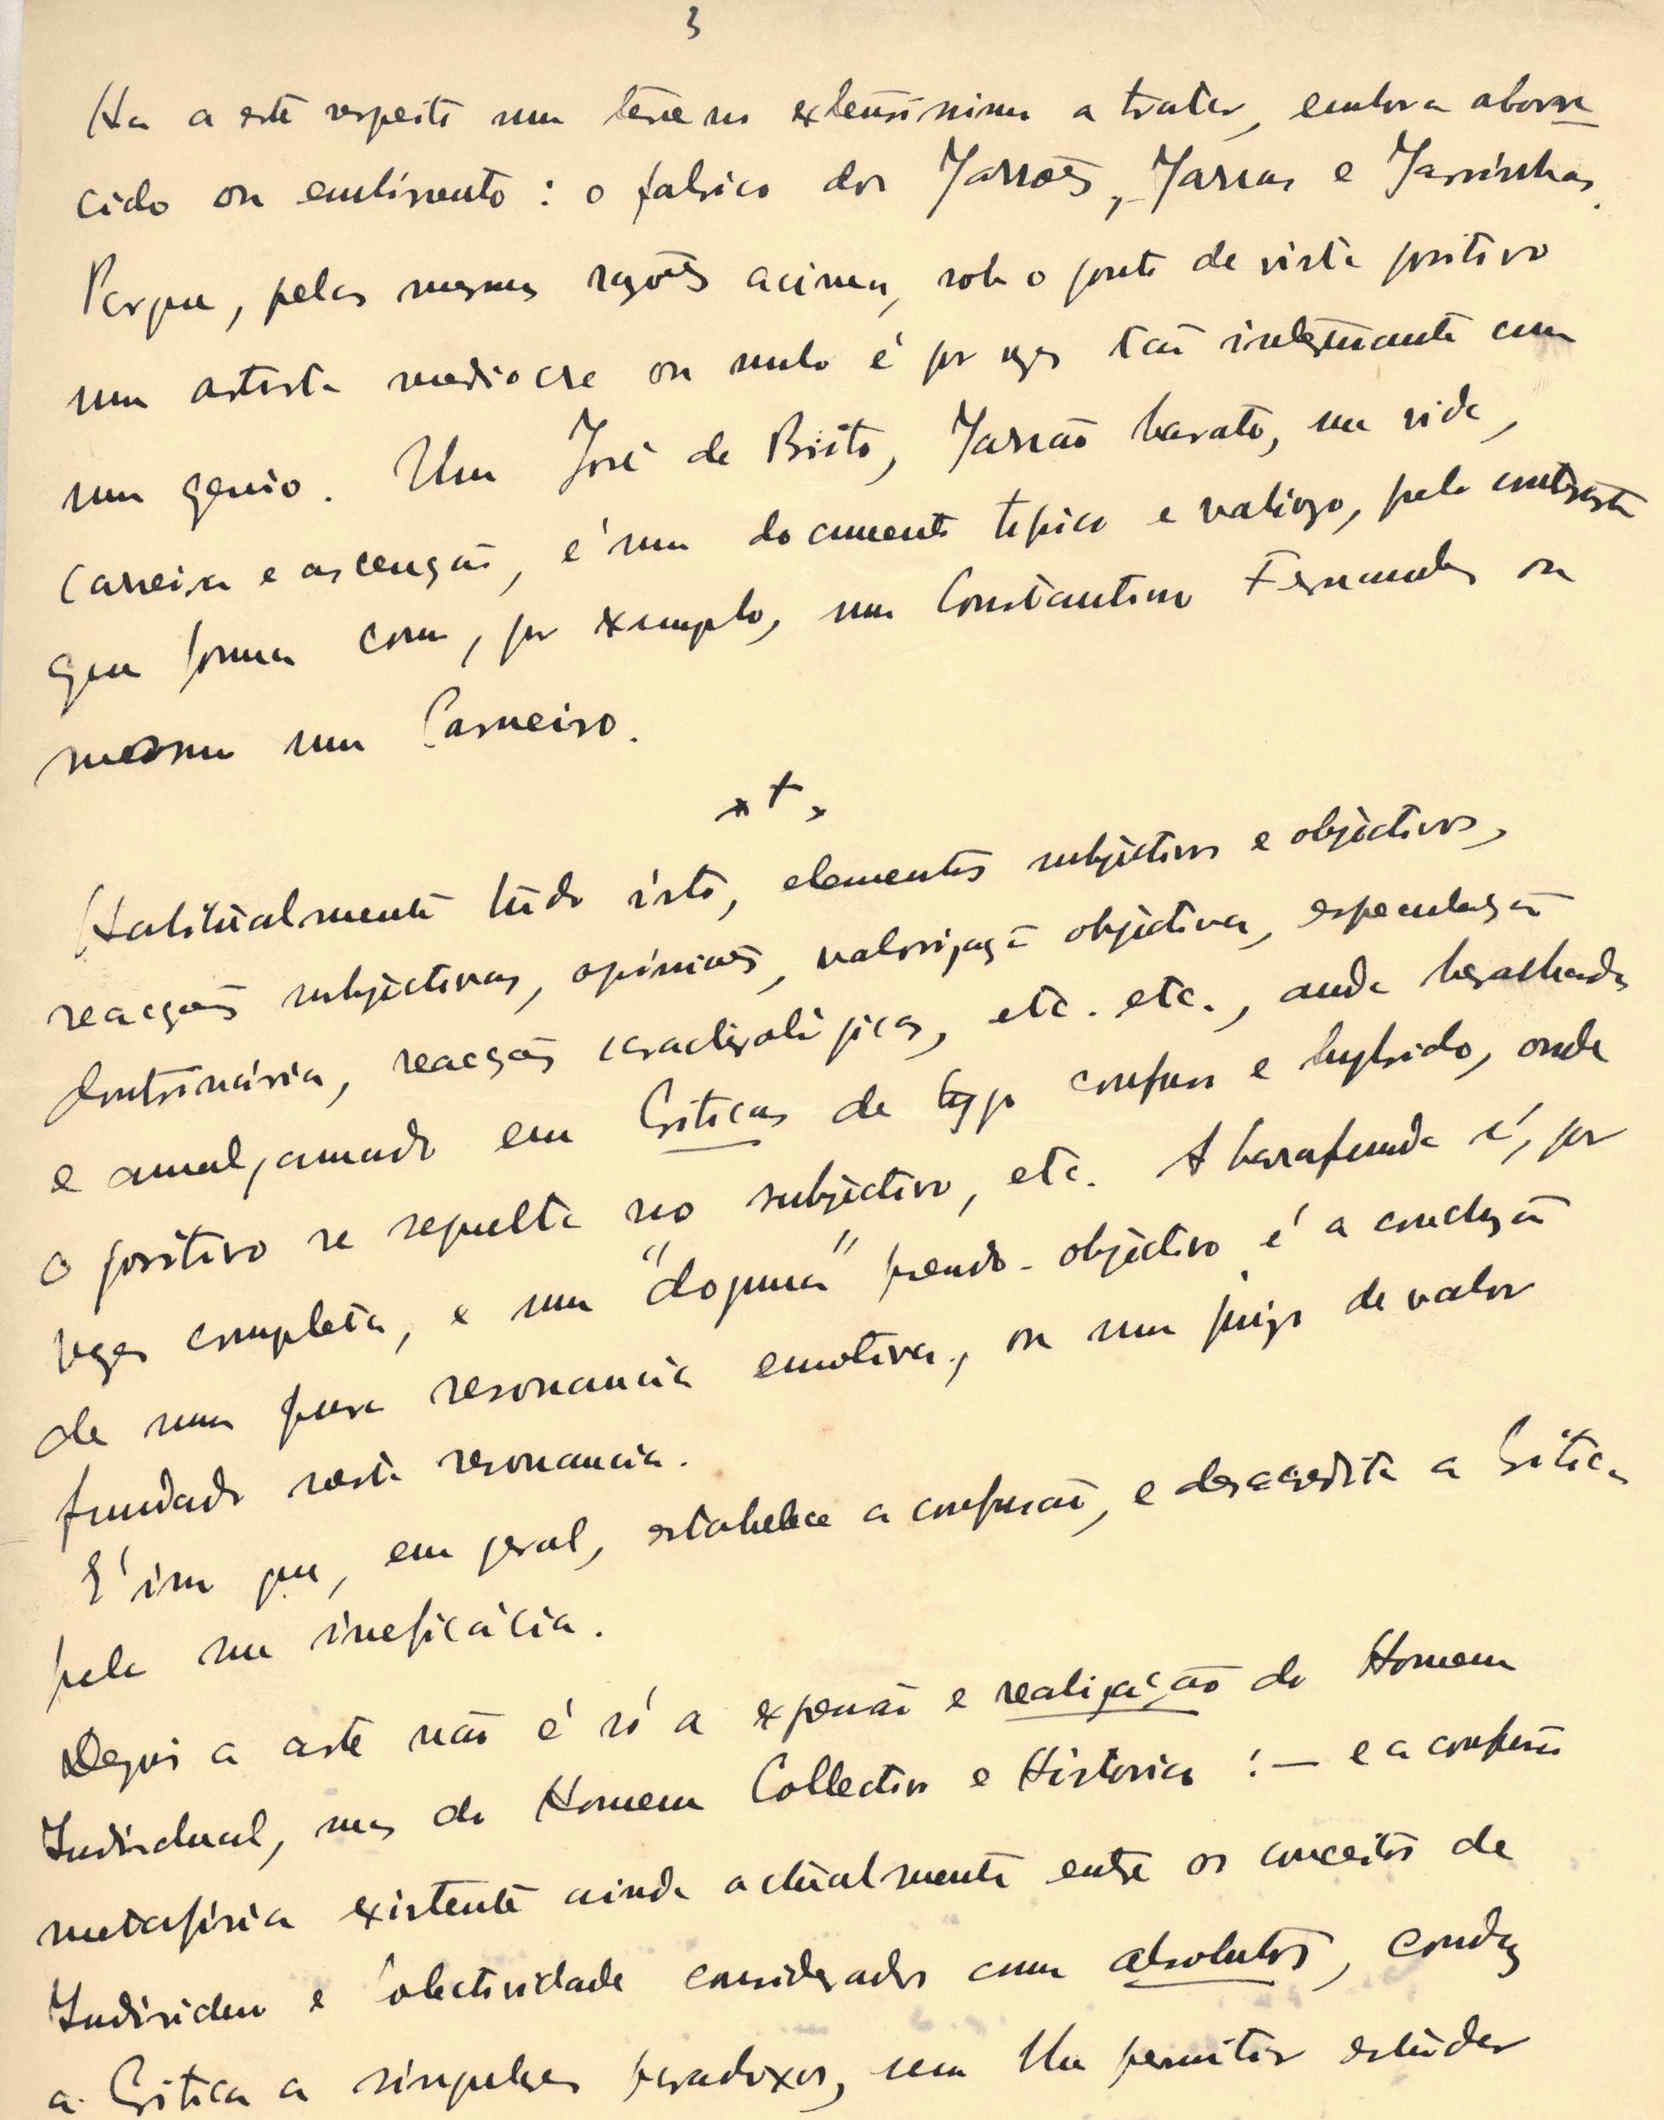 3
Ha a este respeito um terreno extensissimo a tratar, embora aborre
cido ou embirrento : o fabrico dos Jarrões, Jarras e Jarrinhas.
Porque, pelas mesmas razões acima, sob o ponto de vista positivo
um artista mediocre ou nulo é por vezes tão interessante como
um genio. Um José de Brito, Jarrão barato, na vida,
carreira e ascenção, é um documento tipico e valiozo, pelo contraste
que forma com, por exemplo, um Constantino Fernandes ou
mesmo um Carneiro.
***
Habitualmente tudo isto, elementos subjectivos e objectivos,
reacções subjectivas, opiniões, valorização objectiva, especulação
doutrinária, reacções caracterológicas, etc. etc., anda baralhado
e amalgamado em Criticas de typo confuso e hybrido, onde
o positivo se sepulta no subjectivo, etc. A barafunda é, por
vezes completa, e um "dogma" pseudo-objectivo é a conclusão
de uma pura resonancia emotiva, ou um juizo de valor
fundado nesta resonancia.
E' isso que, em geral, estabelece a confusão, e desacredita a Critica
pela sua ineficácia.
Depois a arte não é só a expressão e realização do Homem
Individual, mas do Homem Collectivo e Historico : — e a confusão
metafisica existente ainda actualmente entre os conceitos de
Individuo e Colectividade considerados como absolutos, conduz
a Critica a singulares paradoxos, sem lhe permitir estudar